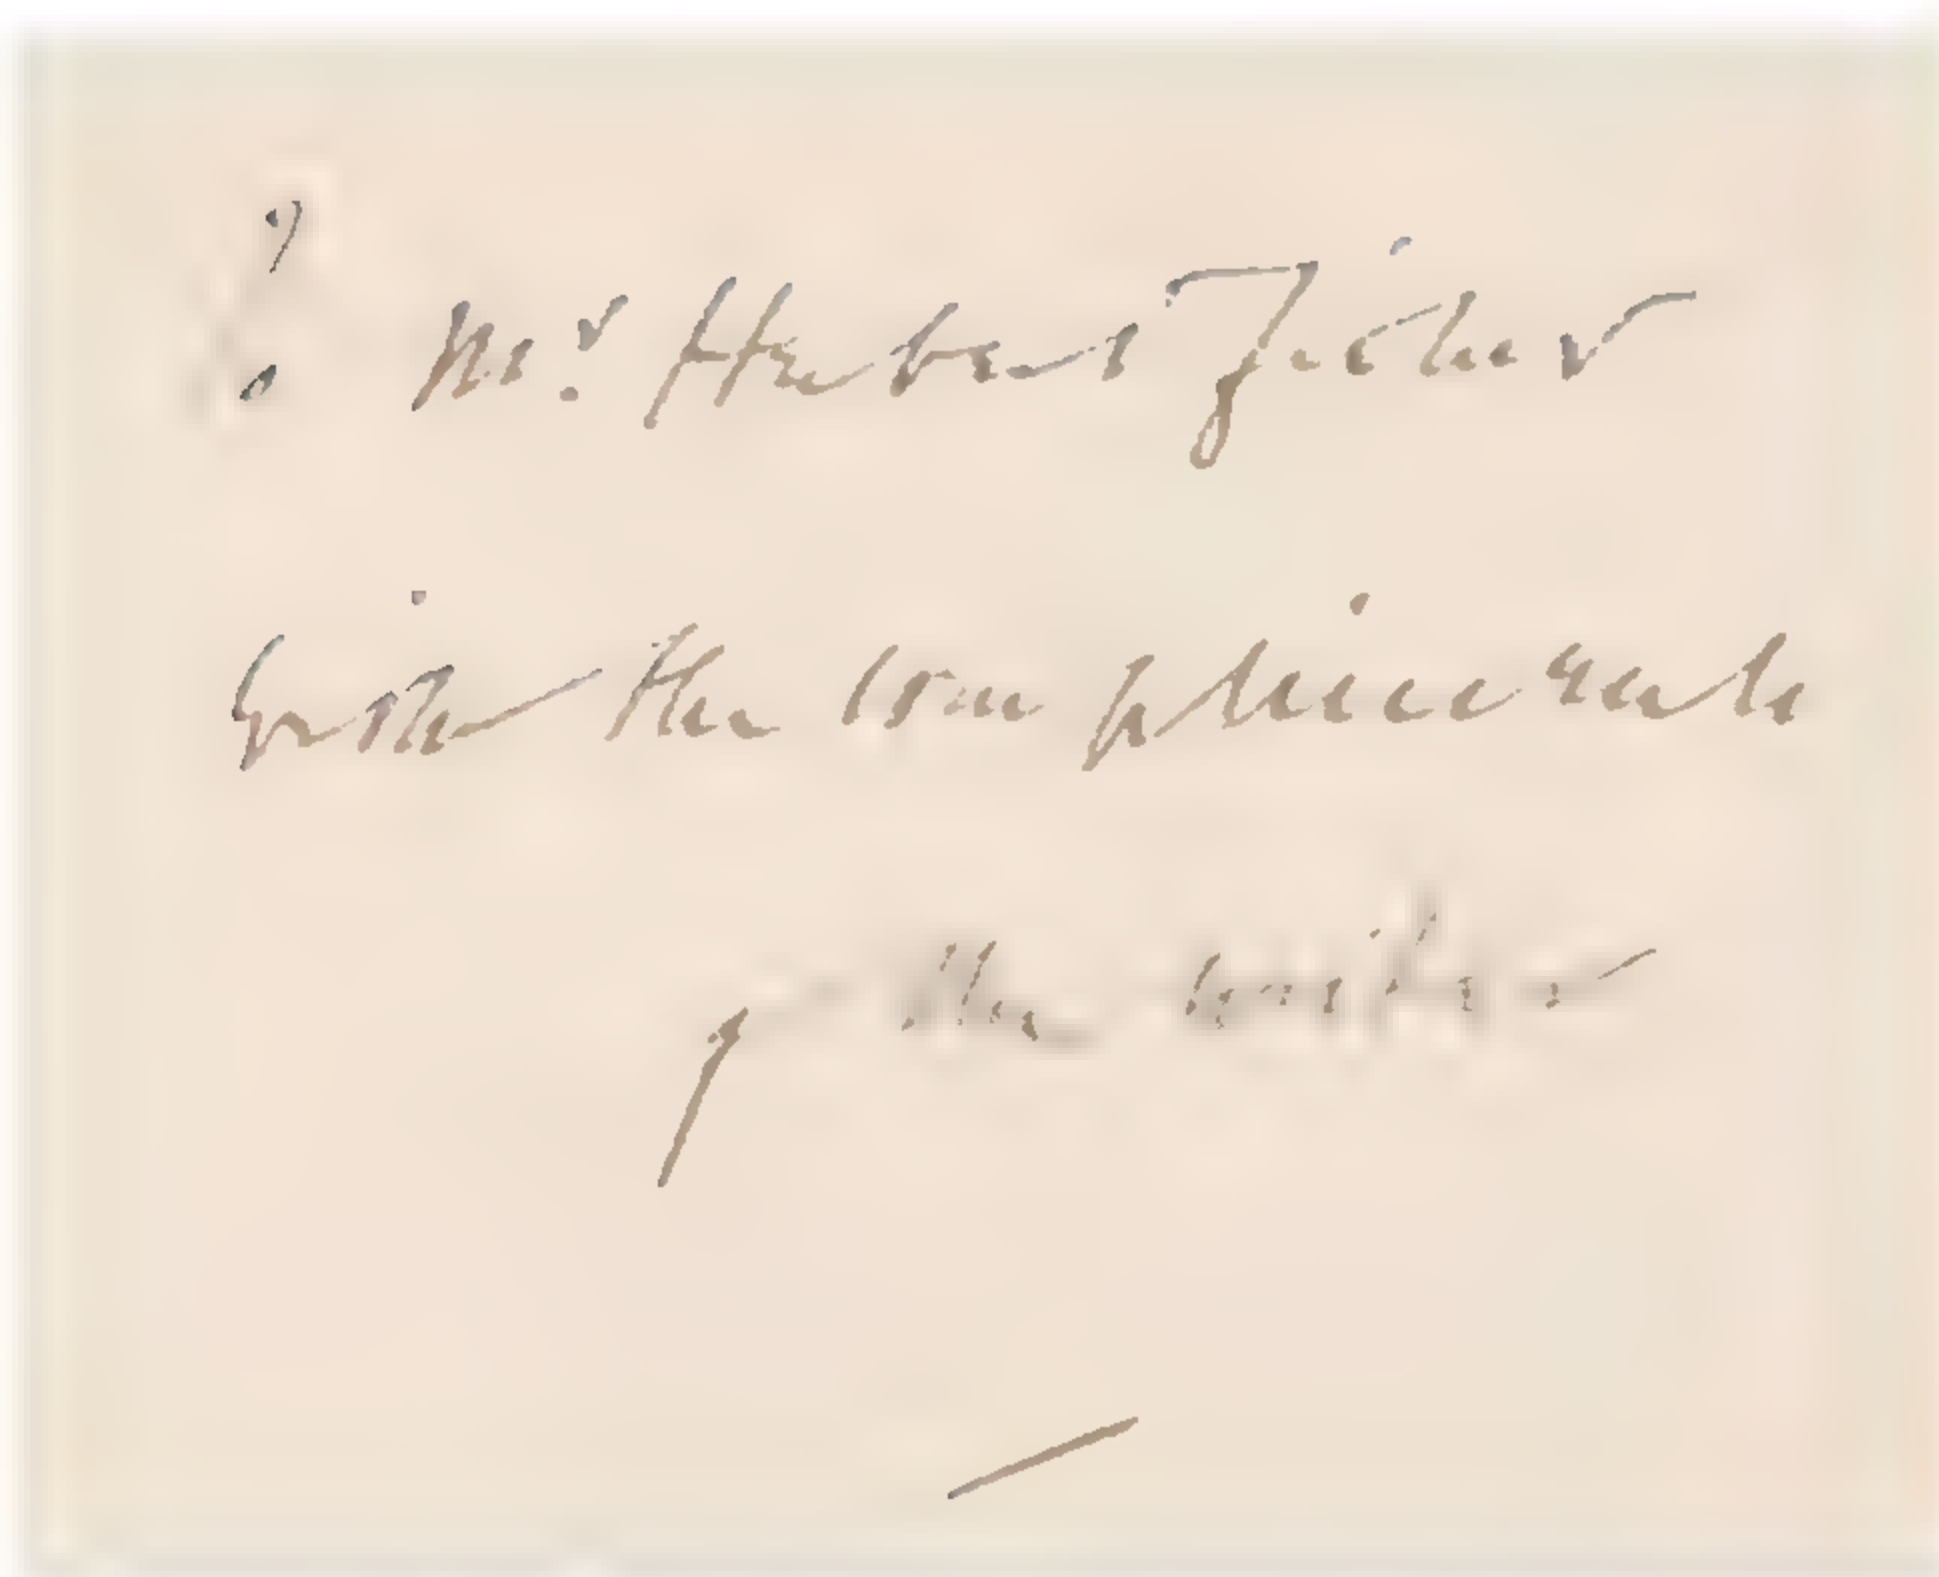 Mr. Herbert Fisher
with the compliments
of the writer